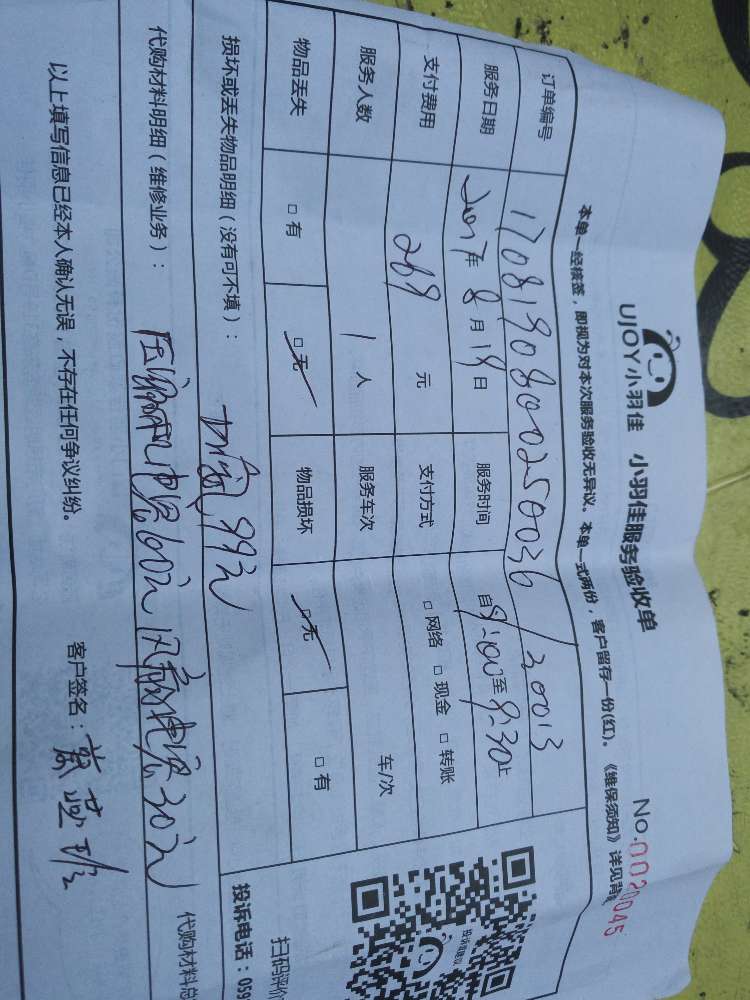 UJOY小羽佳 小羽佳服务验收单
No.0020045
本单一经核签，即视为对本次服务验收无异议。本单一式两份，客户留存一份(红)。《维保须知》详见背
订单编号 1708190800250036/30013
服务日期 2017年8月19日 服务时间 自9:00至9:30止
支付费用 269元 支付方式 □网络 □现金 □转账
服务人数 1人 服务车次 车/次
物品丢失 □有 □无 物品损坏 □无 □有
损坏或丢失物品明细（没有可不填）：
99元
代购材料明细（维修业务）：
60元 30元
代购材料总
以上填写信息已经本人确认无误，不存在任何争议纠纷。 客户签名：
投诉建议
扫码评价
投诉电话：059